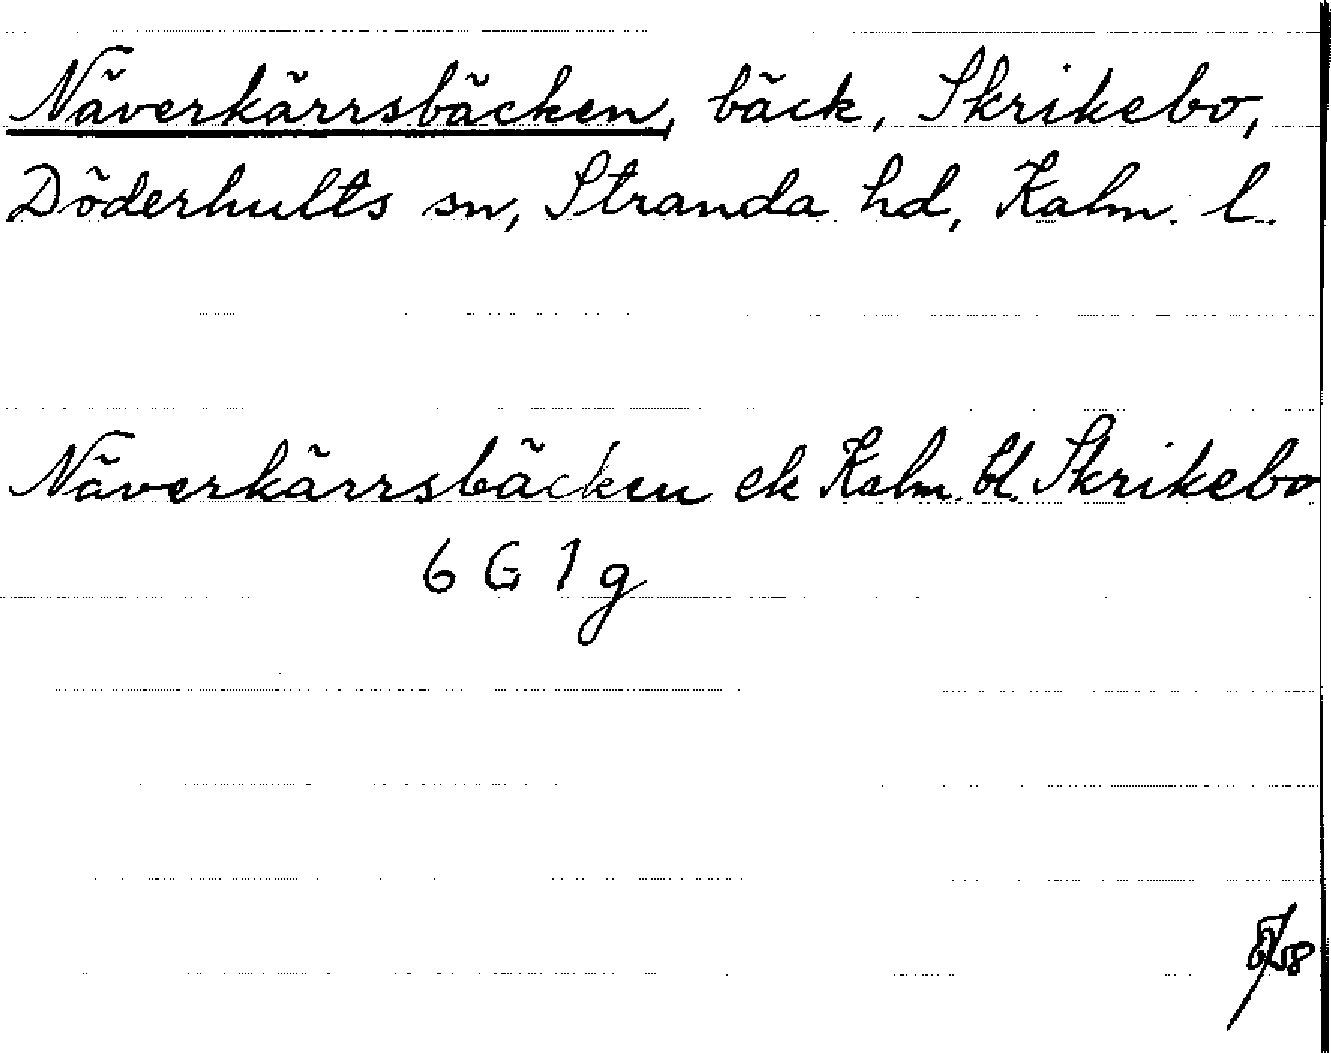 Näverkärrsbäcken, bäck, Skrikebo,
Döderhults sn, Stranda hd, Kalm. l.
Näverkärrsbäcken ek Kalm. bl. Skrikebo
6 G 1 g